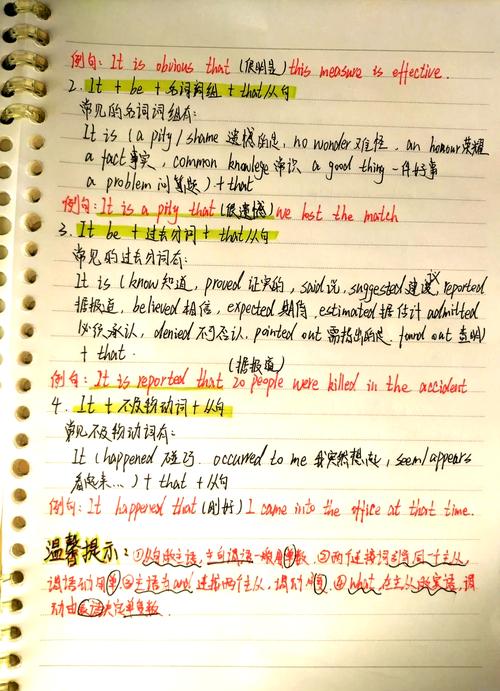 例句: It is obvious that (很明显) this measure is effective.
2. It + be + 名词词组 + that从句
常见的名词词组有:
It is (a pity/shame 遗憾的是, no wonder 难怪, an honour荣耀
a fact事实, common knowlege 常识 a good thing 一件好事
a problem 问题) + that
例句: It is a pity that (很遗憾) we lost the match
3. It be + 过去分词 + that从句
常见的过去分词有:
It is (know知道, proved 证实的, said说, suggested 建议 reported
据报道, believed 相信, expected 期待, estimated 据估计 admitted
必须承认, denied 不可否认, pointed out 需指出的是, found out 查明)
+ that.
(据报道)
例句: It is reported that 20 people were killed in the accident
4. It + 不及物动词 + 从句
常见不及物动词有:
It (happened 碰巧 occurred to me 我突然想起, seem/appears
看起来...) + that + 从句
例句: It happened that (刚好) I came into the office at that time.
温馨提示: ①从句做主语, 主句谓语一般用单数. ②两个连接词引导同一个主从
谓语动词用单. ③主语为and连接两个主从, 谓动用复. ④what 在主从做宾语, 谓
动由宾语决定单复数.